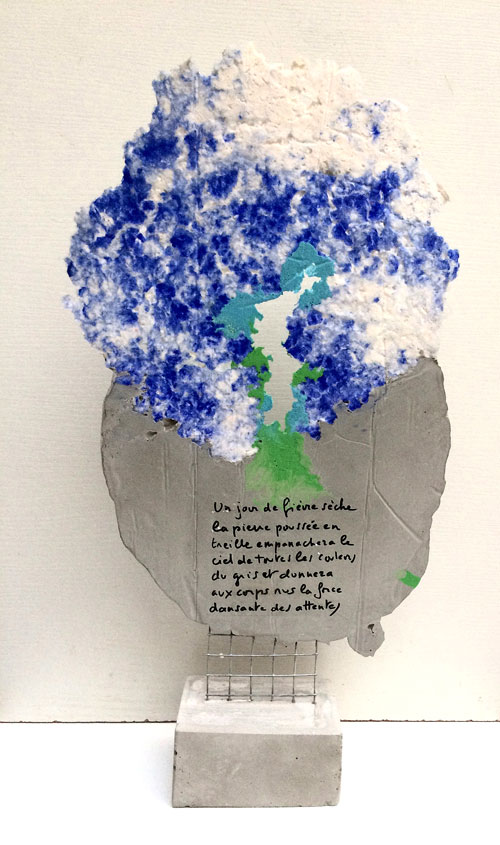 Un jour de fièvre sèche
la pierre poussée en
treille empanachera le
ciel de toutes les couleurs
du gris et donnera
aux corps nus la force
dansante des attentes